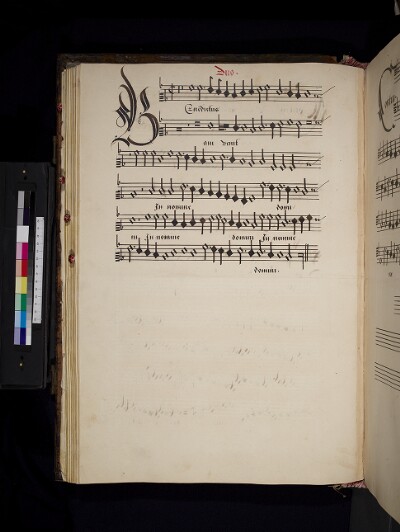 Duo.
Benedictus
qui venit
In nomine domi
ni In nomine domini In nomine
domini.